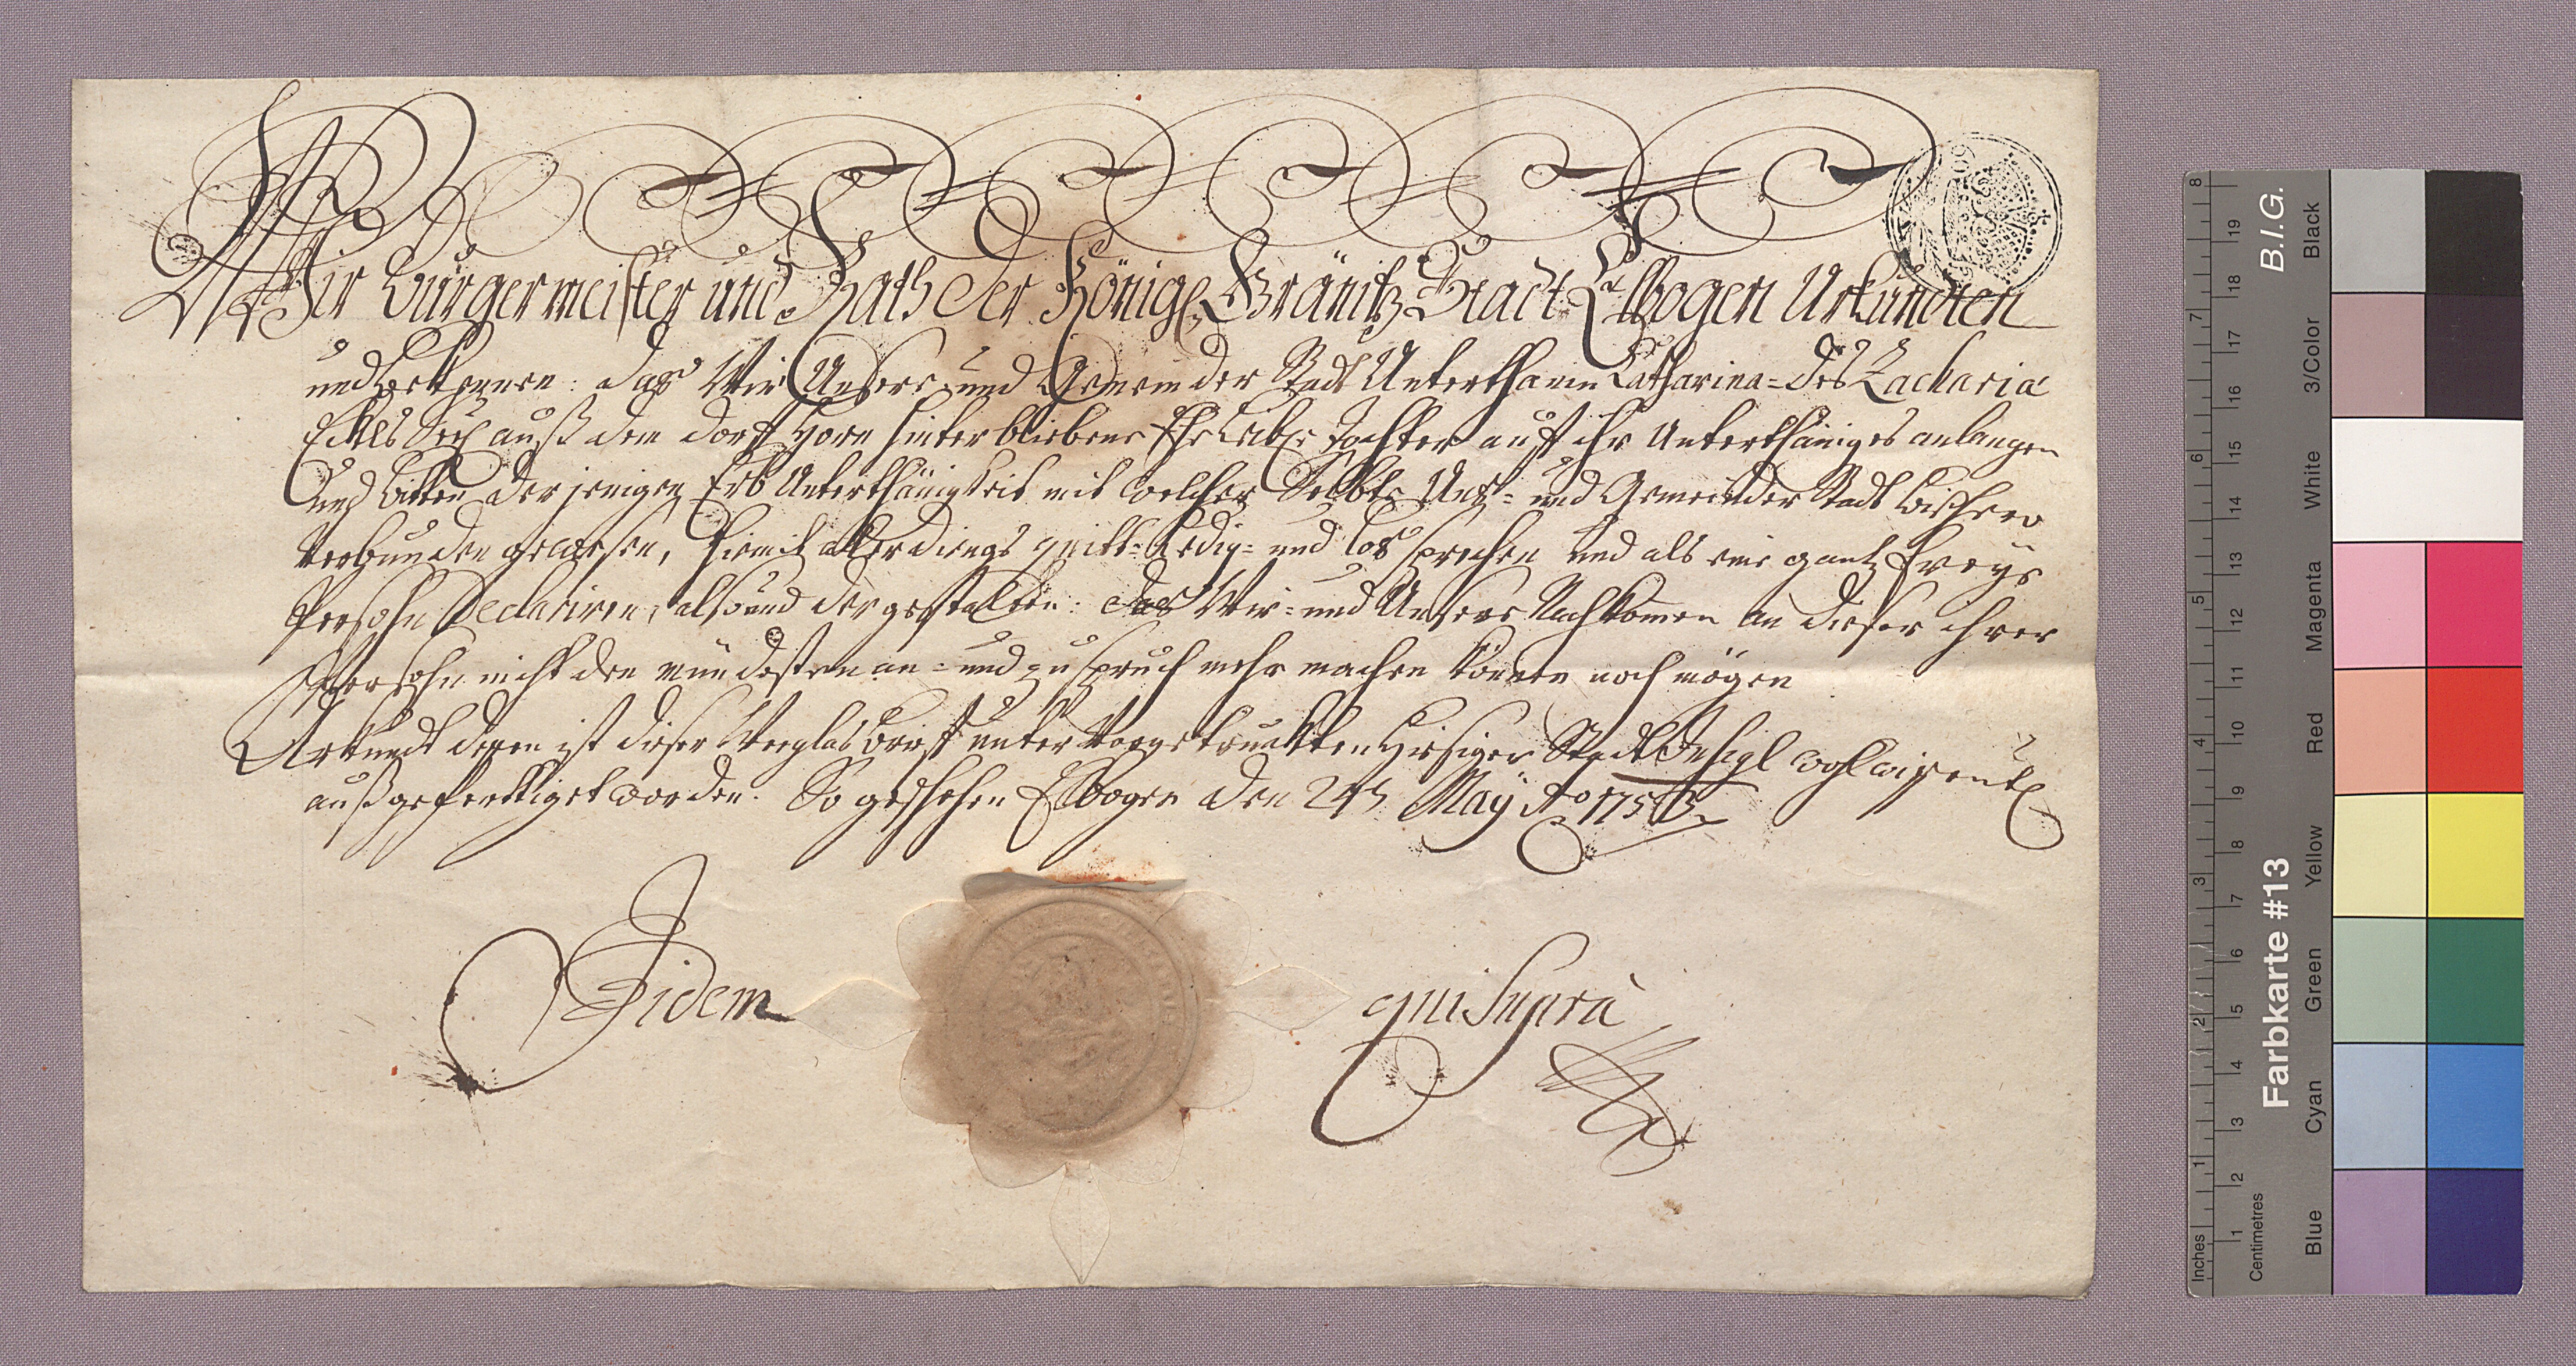 Wir Bürgermeister und Rath der Königl Gränitz Stadt Elbogen Urkunden
und bekennen: das Wir Unsere und Gemeinder Stadt Unterthanin Catharina des Zacharia
Eckls Seel auß dem dorff Horn hinterbliebene Ehe Leibl. Tochter auff ihr Unterthäniges anlangen
Und bitten derjenigen Erb Unterthänigkeit mit welcher Selbte Uns- und Gemeinder Stadt bishero
Verbunden gewesen, hiemit allerdings quitt- Ledig- und los sprechen und als eine gantz Freye
Persohn Declariren, also und dergestalten: das Wir- und Unsere Nachkomen an dieser ihrer
Persohn nicht den mündesten an- und zuspruch mehr machen können noch mögen
Urkundt dessen ist dieser Weeglasbrieff unter Vorgetruckten Hiesiger Stadt Insigl wohlwissentl
außgeferttiget worden. So geschehen Elbogen den 24t May Ao 1753
Iidem
qui Supra
Inches
1
2
3
4
5
6
7
8
Centimetres
1
2
3
4
5
6
7
8
9
10
11
12
13
14
15
16
17
18
19
Farbkarte #13
B.I.G.
Blue
Cyan
Green
Yellow
Red
Magenta
White
3/Color
Black